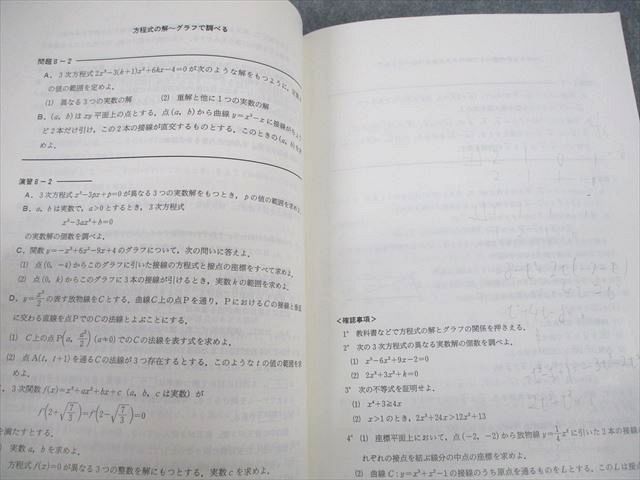 方程式の解〜グラフで調べる
問題8-2
A. 3次方程式2x³-3(k+1)x²+6kx-4=0が次のような解をもつように,
の値の範囲を定めよ.
(1) 異なる3つの実数の解 (2) 重解と他に1つの実数の解
B. (a, b)はxy平面上の点とする. 点(a, b)から曲線y=x³-xに接線が
ど2本だけ引け, この2本の接線が直交するものとする. このときの(a, b)を
めよ.
演習8-2
A. 3次方程式x³-3px+p=0が異なる3つの実数解をもつとき, pの値の範囲を求め
B. a, bは実数で, a>0とするとき, 3次方程式
x³-3ax²+b=0
の実数解の個数を調べよ.
C. 関数y=-x³+6x²-9x+4のグラフについて, 次の問いに答えよ.
(1) 点(0, -4)からこのグラフに引いた接線の方程式と接点の座標をすべて求め
(2) 点(0, k)からこのグラフに3本の接線が引けるとき, 実数kの範囲を求めよ.
D. y=x²/2の表す放物線をCとする. 曲線C上の点Pを通り, PにおけるCの接線と垂直
に交わる直線を点PでのCの法線とよぶことにする.
(1) C上の点P(a, a²/2) (a≠0)でのCの法線を表す式を求めよ.
(2) 点A(t, t+1)を通るCの法線が3つ存在するとする. このようなtの値の範囲を求
めよ.
3次関数f(x)=x³+ax²+bx+c (a, b, cは実数)が
f'(2+√(7/3))=f'(2-√(7/3))=0
を満たすとする.
実数a, bを求めよ.
方程式f(x)=0が異なる3つの整数を解にもつとする. 実数cを求めよ.
<確認事項>
1° 教科書などで方程式の解とグラフの関係を押さえる.
2° 次の3次方程式の異なる実数解の個数を調べよ.
(1) x³-6x²+9x-2=0
(2) 2x³+3x²+k=0
3° 次の不等式を証明せよ.
(1) x⁴+3≧4x
(2) x>1のとき, 2x³+24x>12x²+13
4° (1) 座標平面上において, 点(-2, -2)から放物線y=1/4x²に引いた2本の接線
れぞれの接点を結ぶ線分の中点の座標を求めよ.
(2) 曲線C: y=x³+x²-1の接線のうち原点を通るものをLとする. このLは接点